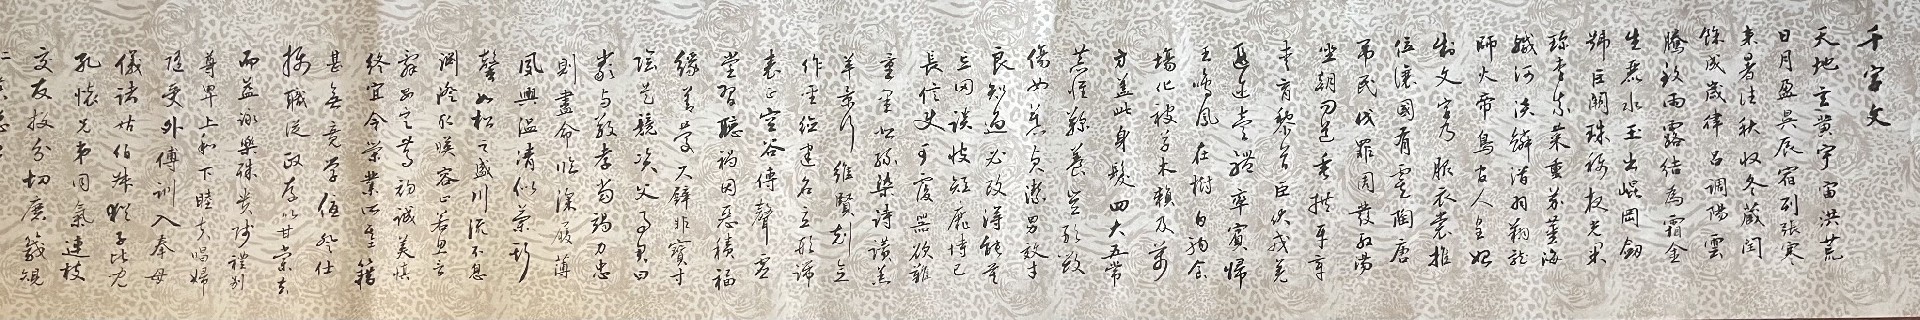 千字文
天地玄黄宇宙洪荒
日月盈昃辰宿列張寒
来暑往秋收冬藏閏
餘成歲律吕調陽雲
騰致雨露結為霜金
生麗水玉出崐岡劔
號巨闕珠稱夜光果
珍李柰菜重芥薑海
鹹河淡鱗潛羽翔龍
師火帝鳥官人皇始
制文字乃服衣裳推
位讓國有虞陶唐
弔民伐罪周發殷湯
坐朝問道垂拱平章
愛育黎首臣伏戎羌
遐邇壹體率賓歸
王鳴鳳在樹白駒食
場化被草木賴及萬
方蓋此身髮四大五常
恭惟鞠養豈敢毀
傷女慕貞潔男效才
良知過必改得能莫
忘罔談彼短靡恃己
長信使可覆器欲難
量墨悲絲染詩讚羔
羊景行維賢剋念
作聖德建名立形端
表正空谷傳聲虛
堂習聽禍因惡積福
緣善慶尺璧非寶寸
陰是競資父事君曰
嚴與敬孝當竭力忠
則盡命臨深履薄
夙興温凊似蘭斯
馨如松之盛川流不息
淵澄取暎容止若思言
辭安定篤初誠美慎
終宜令榮業所基籍
甚無竟學優登仕
攝職從政存以甘棠去
而益詠樂殊貴賤禮別
尊卑上和下睦夫唱婦
隨受外傅訓入奉母
儀諸姑伯叔猶子比兒
孔懷兄弟同氣連枝
交友投分切磨箴規
仁慈